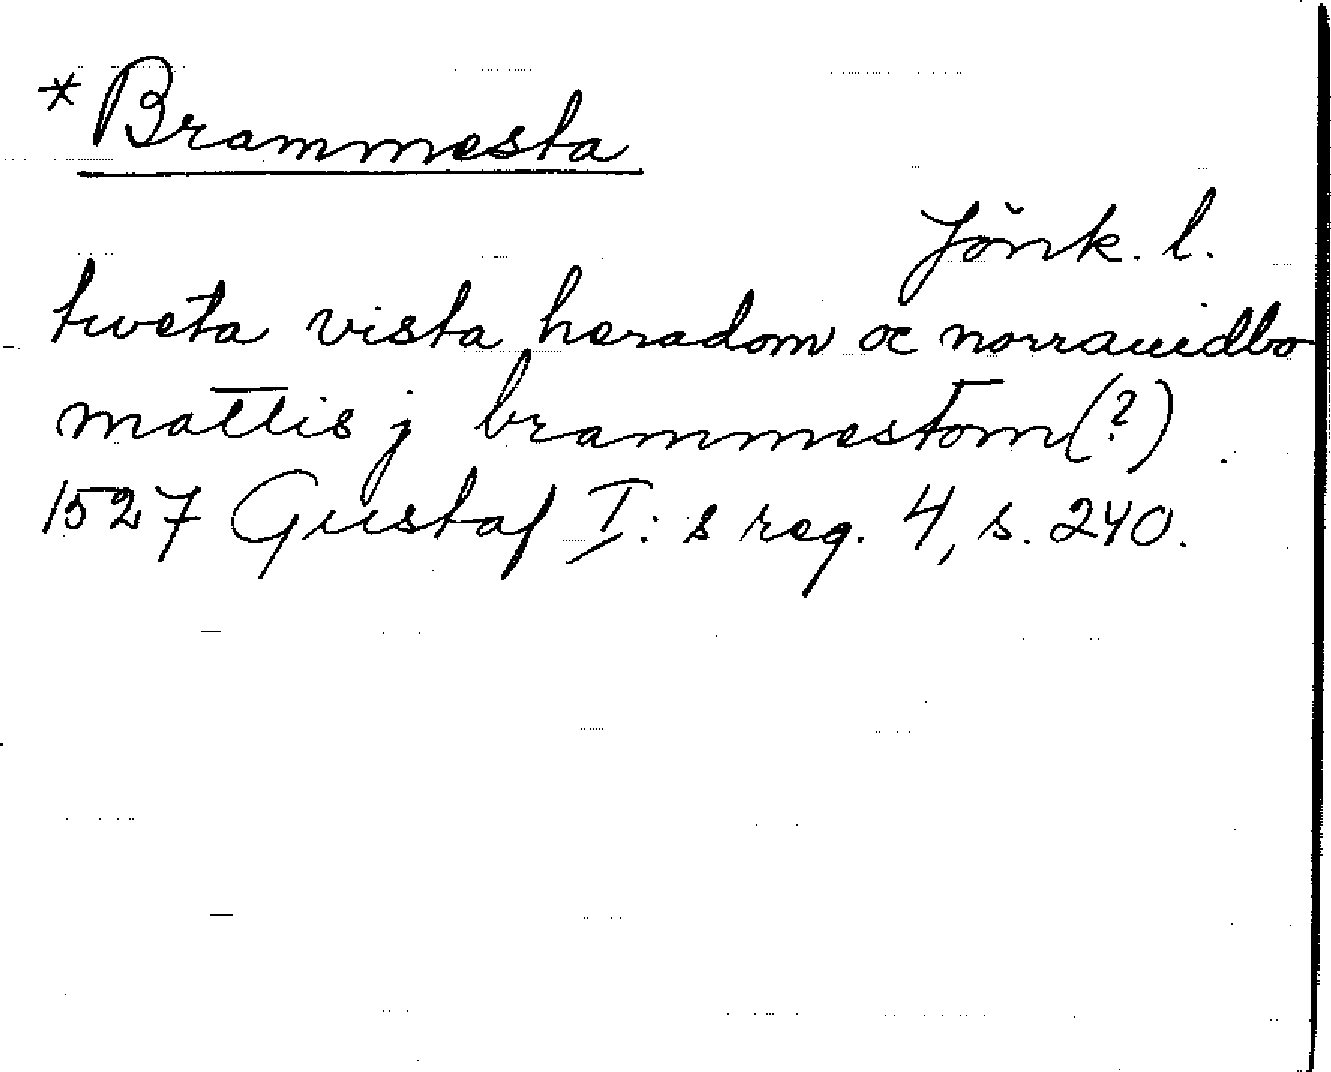 *Brammesta
Jönk. l.
tweta vista heradom oc norrauidbo
mattis j brammestom (?)
1527 Gustaf I:s reg. 4, s. 240.